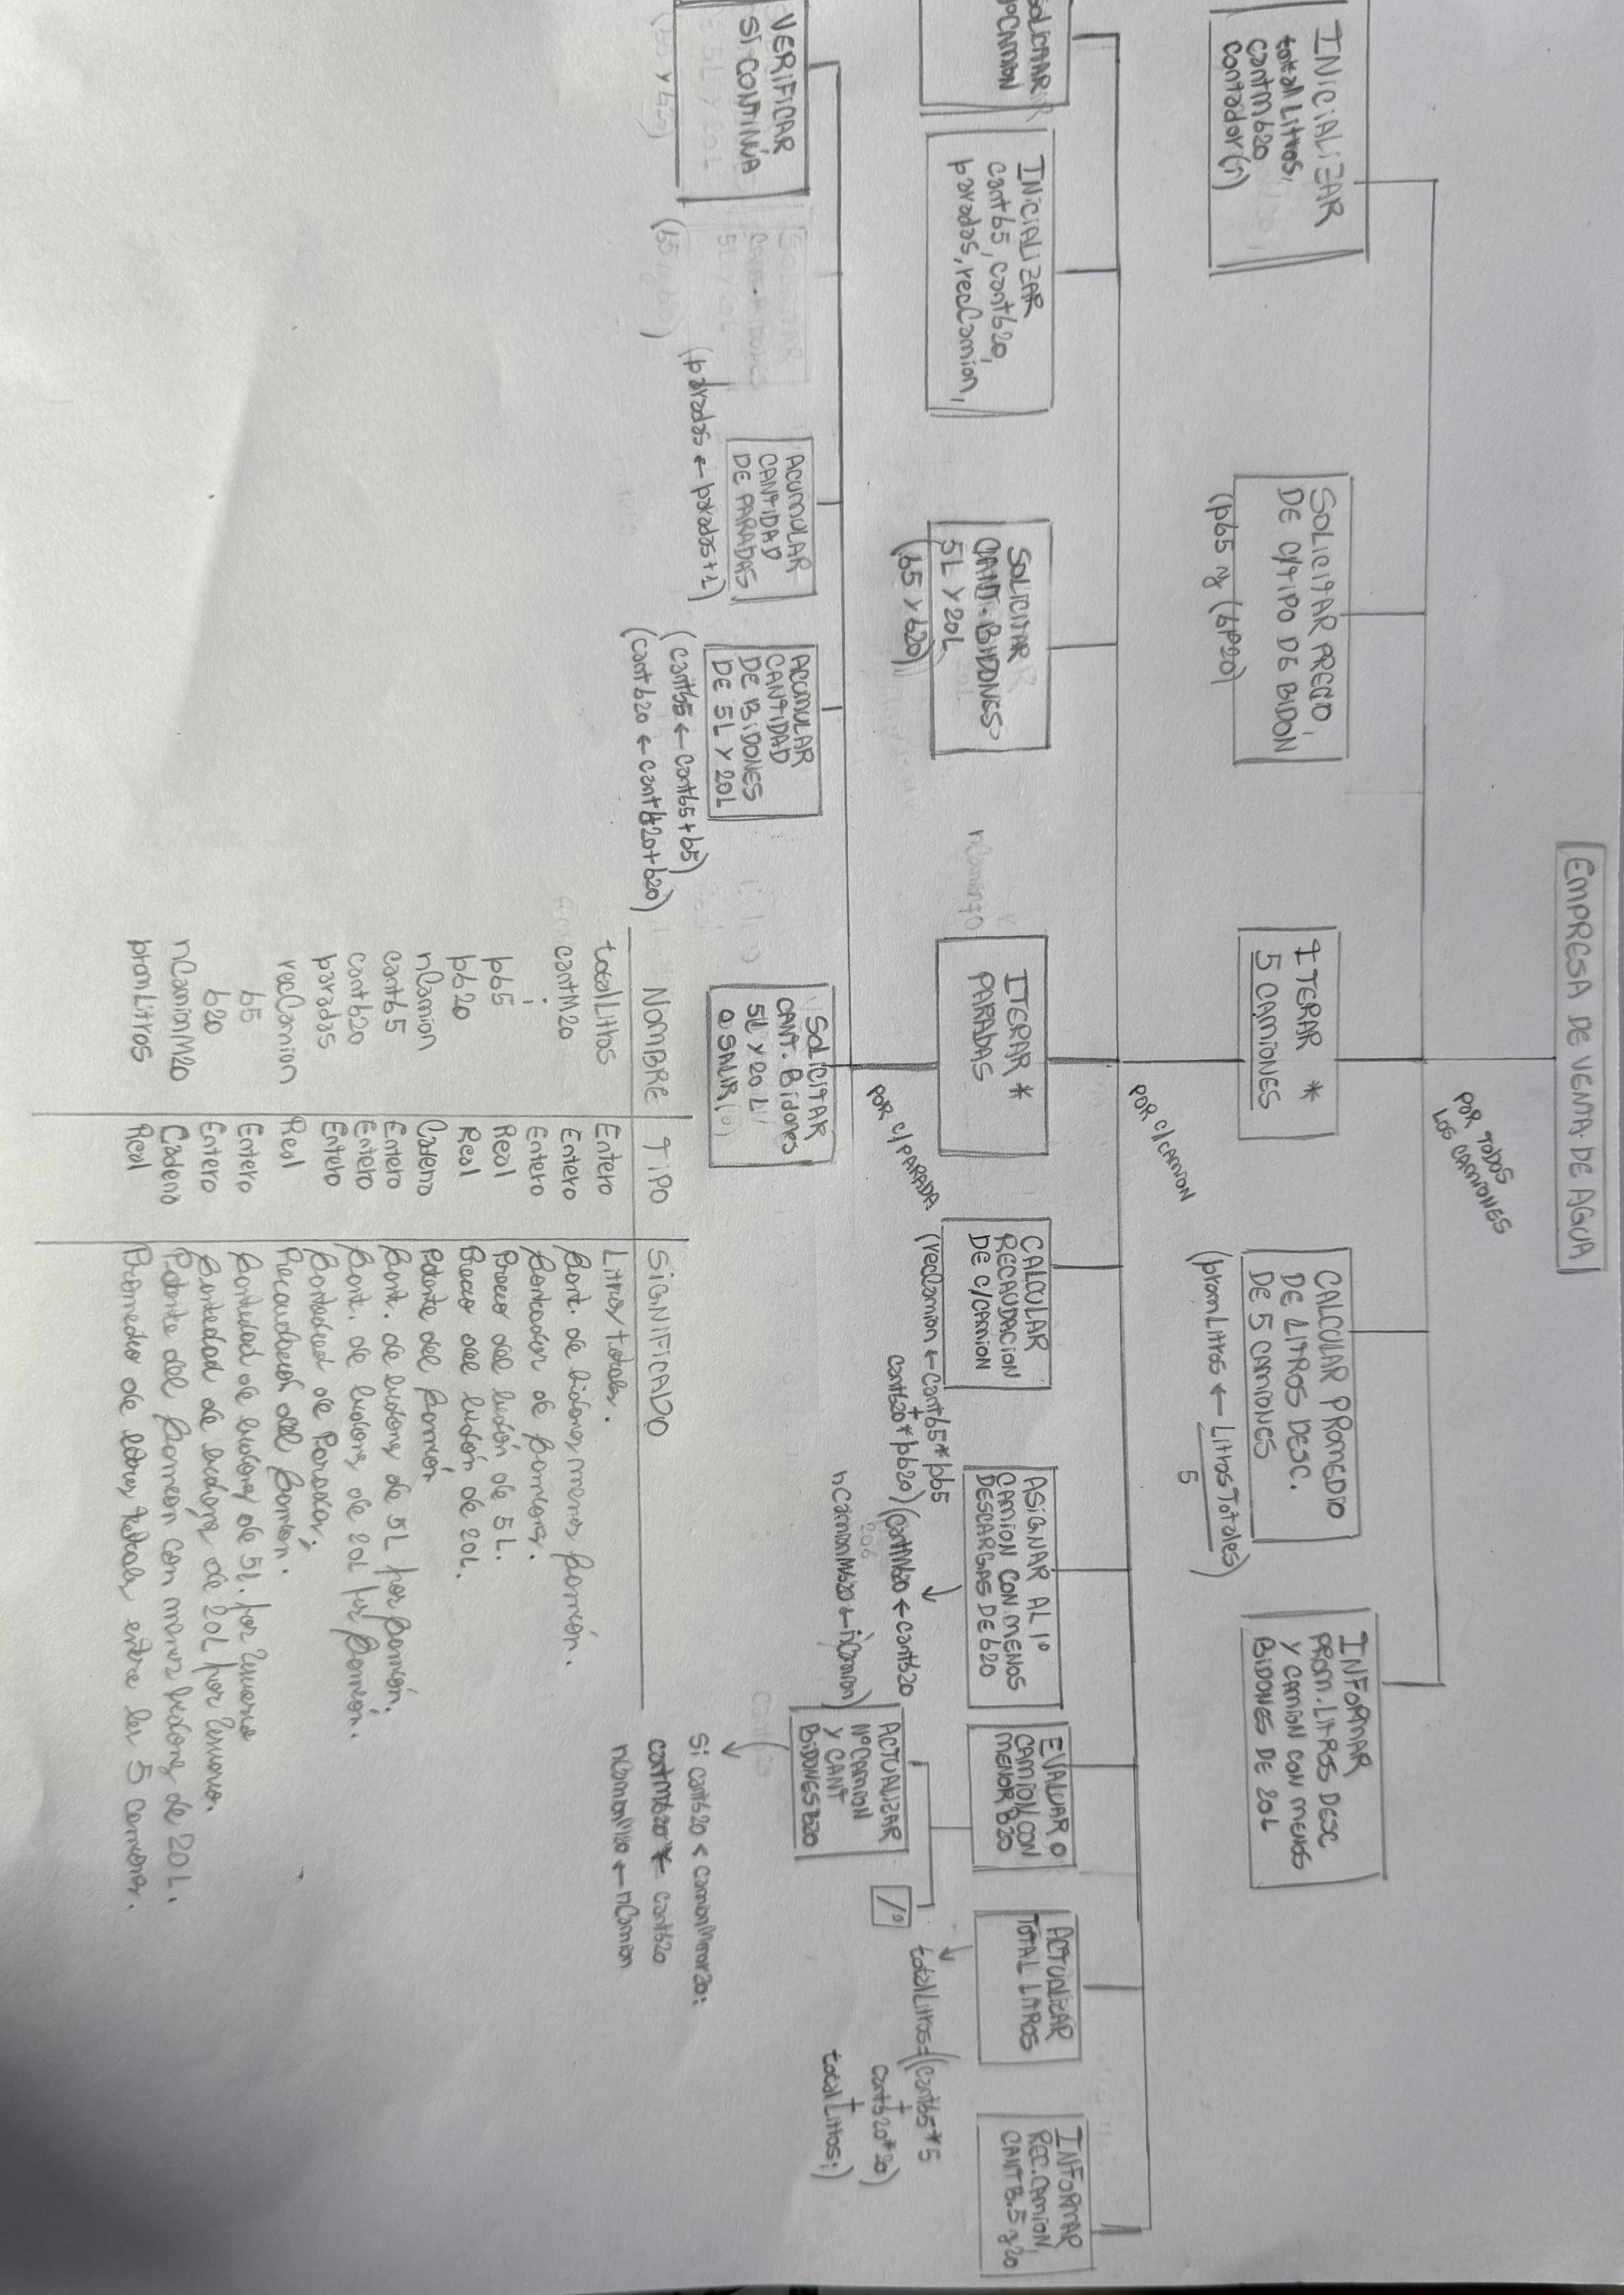 EMPRESA DE VENTA DE AGUA
POR TODOS
LOS CAMIONES
INICIALIZAR
totalLitros,
cantMb20
contador(i)
SOLICITAR PRECIO,
DE C/TIPO DE BIDÓN
(pb5 y (bp20)
ITERAR *
5 CAMIONES
CALCULAR PROMEDIO
DE LITROS DESC.
DE 5 CAMIONES
(promLitros ← LitrosTotales)
5
INFORMAR
PROM. LITROS DESC
Y CAMION CON MENOS
BIDONES DE 20L
POR C/CAMION
SOLICITAR
NºCAMION
INICIALIZAR
cantb5, cantb20,
paradas, recCamion,
SOLICITAR
CANT. BIDONES
5L Y 20L
(b5 y b20)
nCamion
ITERAR *
PARADAS
CALCULAR
RECAUDACION
DE C/CAMION
(recCamion ← Cantb5*pb5
+
cantb20*pb20)
ASIGNAR AL 1º
CAMION CON MENOS
DESCARGAS DE b20
(cantMb20 ← cantb20
nCamionMb20 ← nCamion)
EVALUAR º
CAMION CON
MENOR B20
ACTUALIZAR
NºCAMION
Y CANT
BIDONES B20
/º
Si cantb20 < camionMenor20:
cantMb20 ← cantb20
nCamionM20 ← nCamion
ACTUALIZAR
TOTAL LITROS
totalLitros=((cantb5*5
+
cantb20*20)
+
totalLitros;)
INFORMAR
REC.CAMION,
CANT B.5 y 20
POR C/PARADA
VERIFICAR
SI CONTINÚA
(b5 y b20)
ACUMULAR
CANTIDAD
DE PARADAS
(paradas ← paradas+1)
ACUMULAR
CANTIDAD
DE BIDONES
DE 5L Y 20L
(cantb5 ← cantb5+b5)
(cantb20 ← cantb20+b20)
SOLICITAR
CANT. Bidones
5L Y 20 L
O SALIR (0)
NOMBRE TIPO SIGNIFICADO
totalLitros Entero Litros totales.
cantM20 Entero Cant. de bidones menor camión.
i Entero Contador de camiones.
pb5 Real Precio del bidón de 5L.
pb20 Real Precio del bidón de 20L.
nCamion Cadena Patente del camión
cantb5 Entero Cant. de bidones de 5L por camión.
cantb20 Entero Cant. de bidones de 20L por camión.
paradas Entero Cantidad de Paradas.
recCamion Real Recaudación del camión.
b5 Entero Cantidad de bidones de 5L. por
b20 Entero Cantidad de bidones de 20L por
nCamionM20 Cadena Patente del camión con menos bidones de 20L.
promLitros Real Promedio de litros totales entre los 5 camiones.